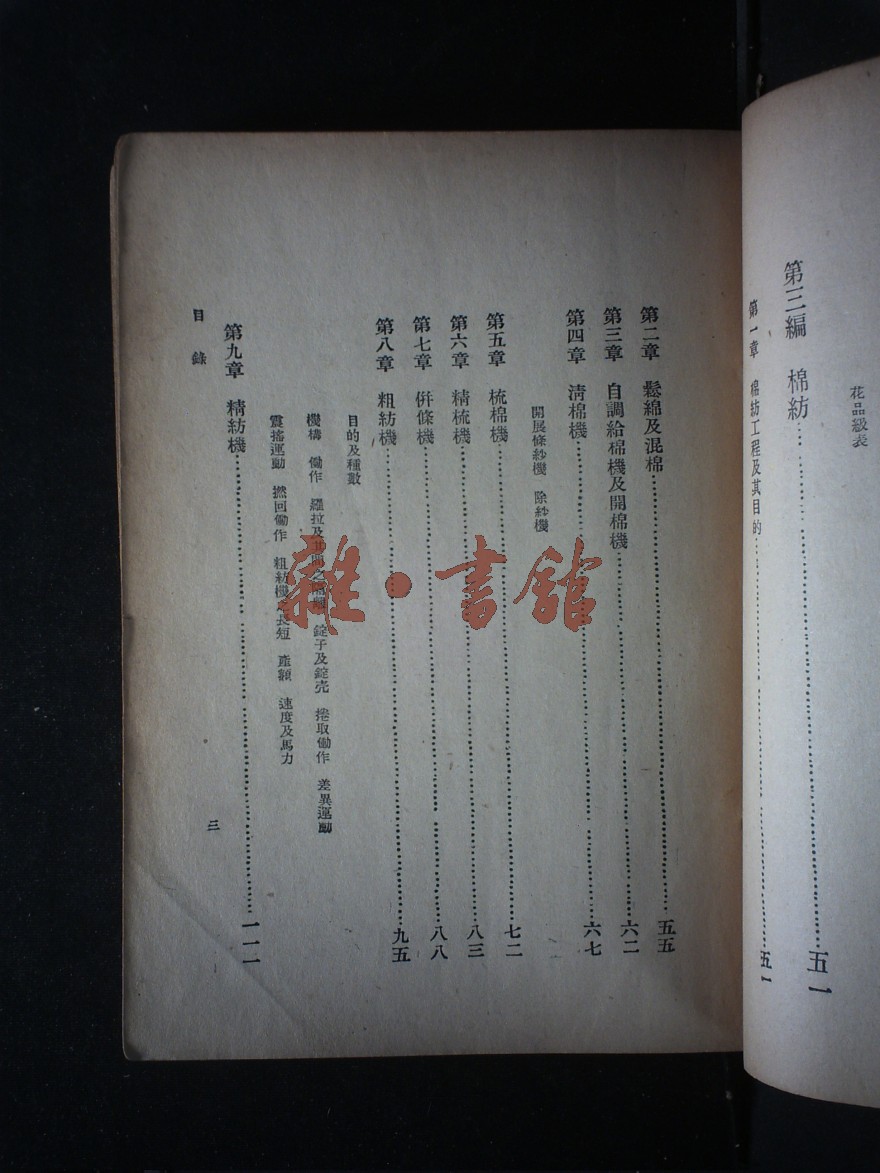 花品級表
第三編　棉紡……五一
第一章　棉紡工程及其目的……五一
第二章　鬆綿及混棉……五五
第三章　自調給棉機及開棉機……六二
第四章　淸棉機……六七
開展條紗機　除紗機
第五章　梳棉機……七二
第六章　精梳機……八三
第七章　併條機……八八
第八章　粗紡機……九五
目的及種數
機構　働作　羅拉及其間之距離　錠子及錠壳　捲取働作　差異運動
震搖運動　撚回働作　粗紡機之長短　產額　速度及馬力
第九章　精紡機……一一二
目錄
三
雜·書館